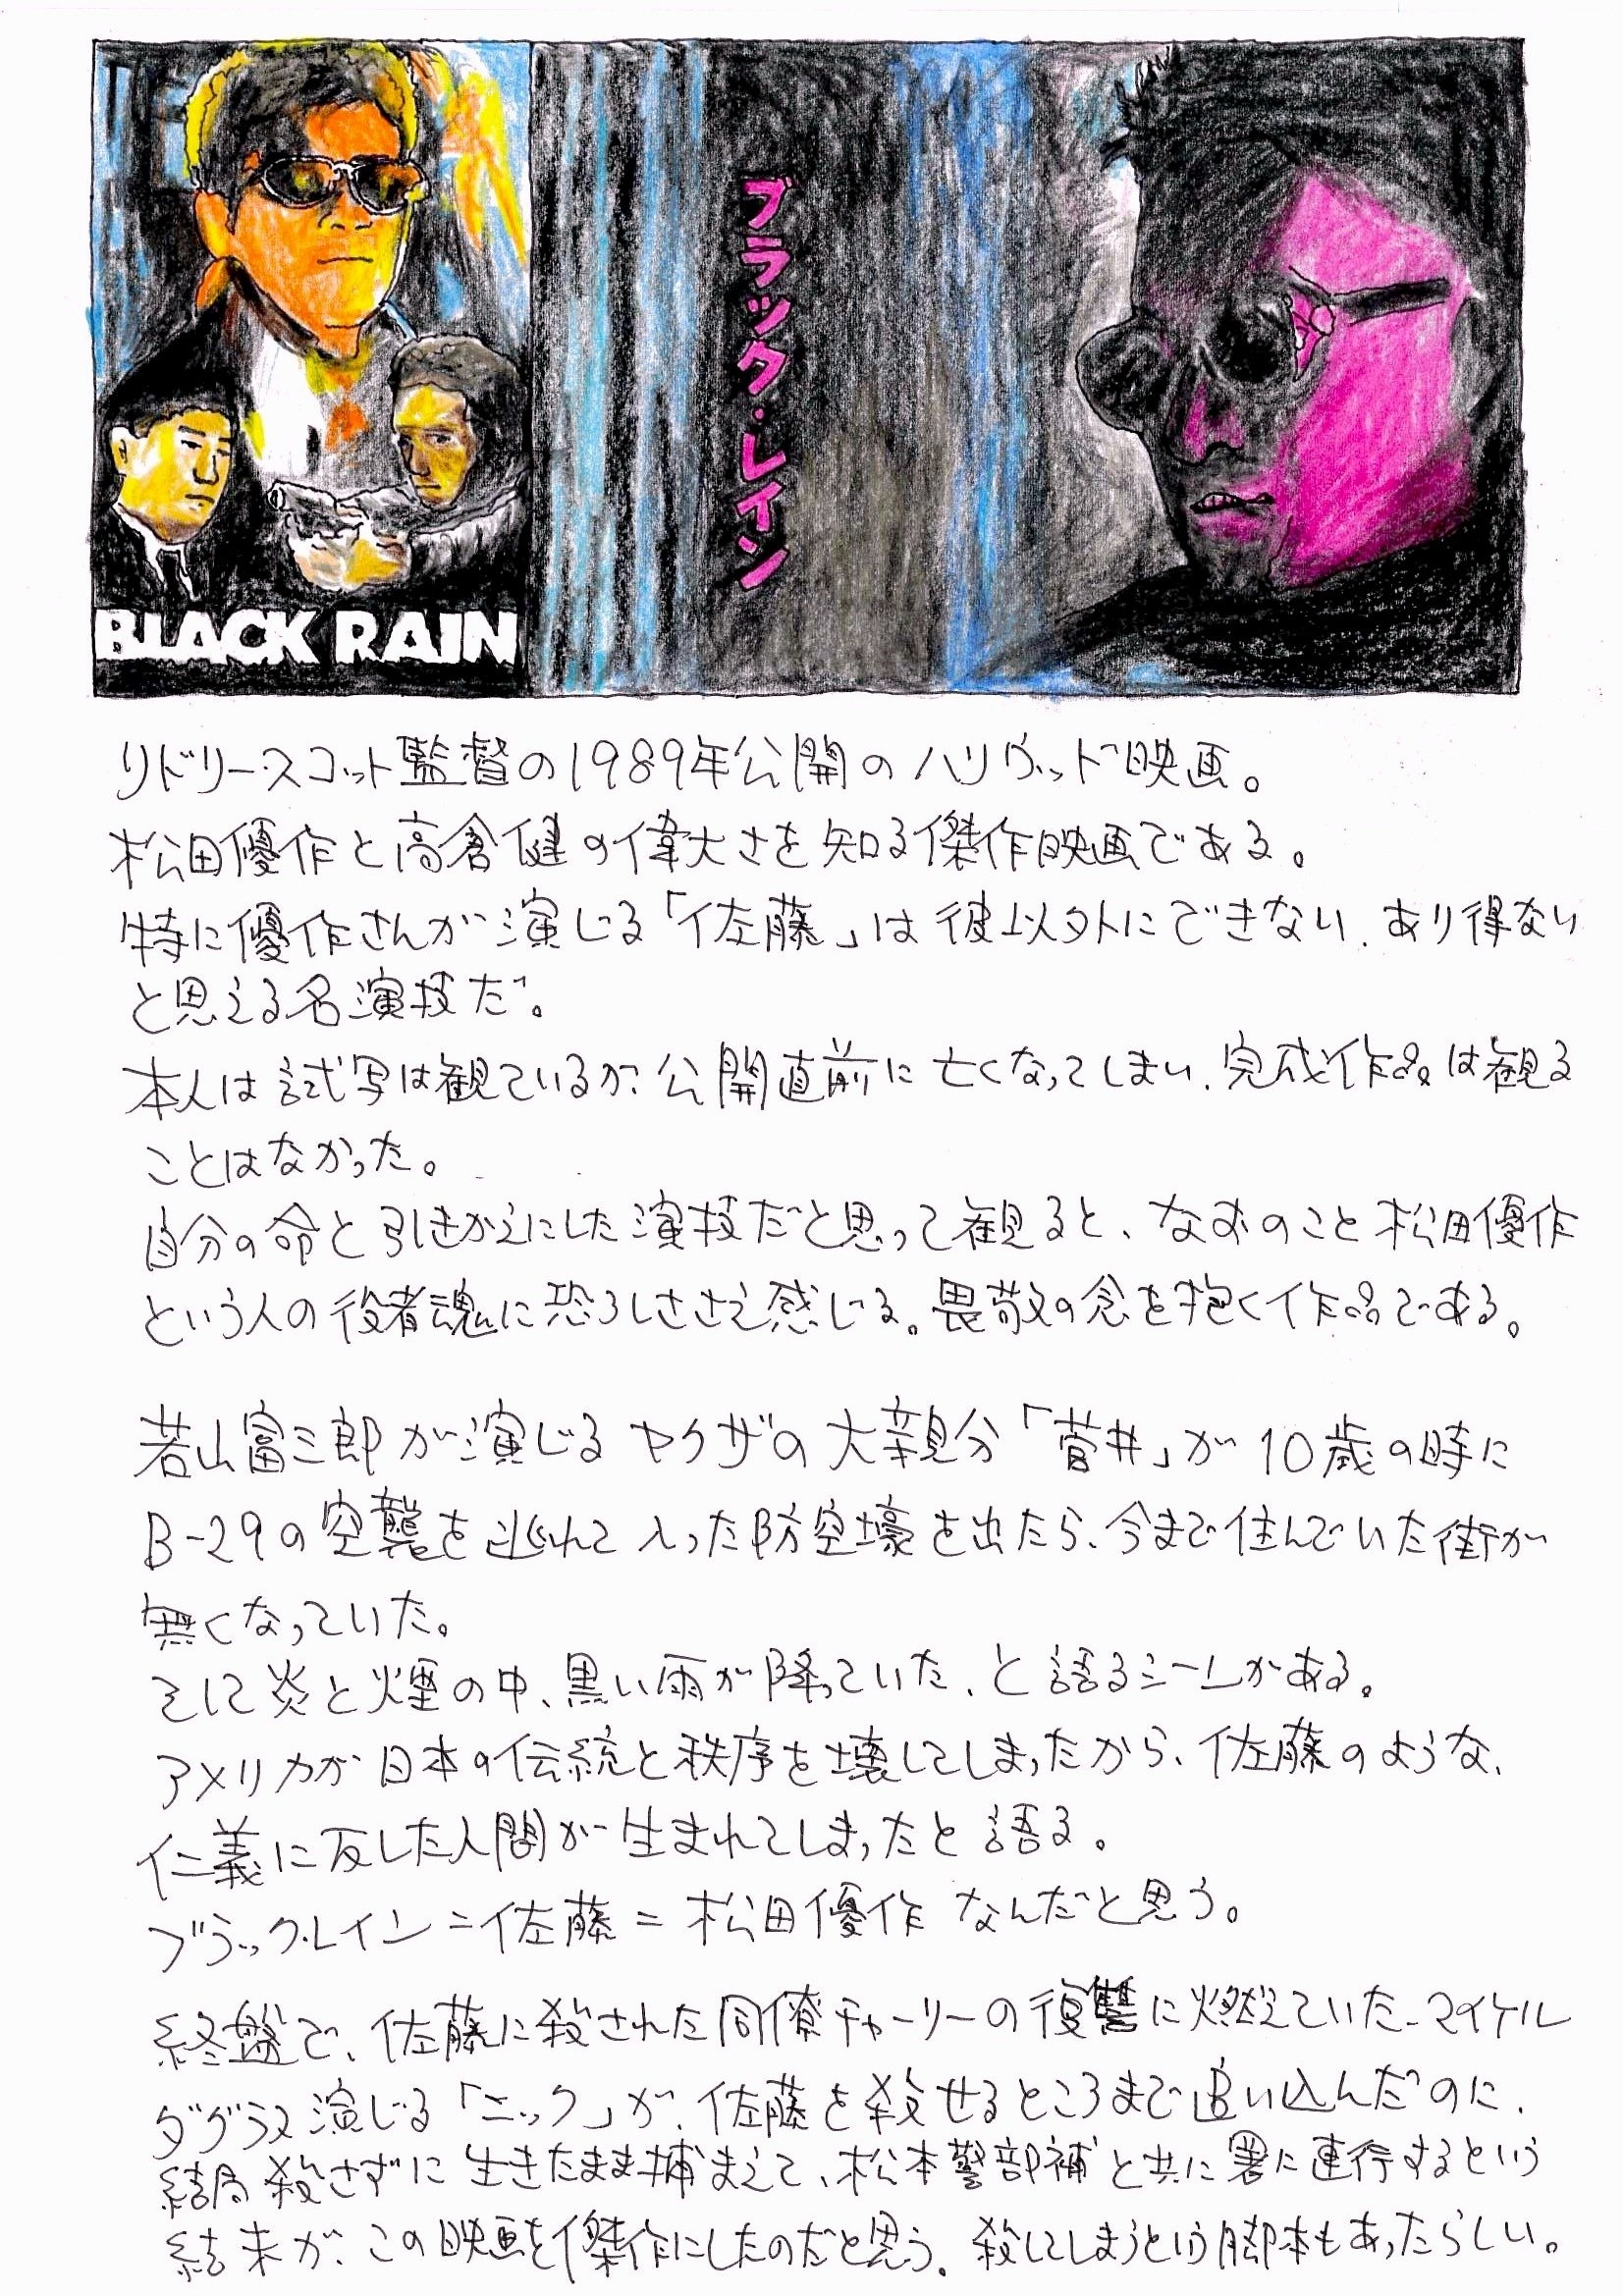 BLACK RAIN
ブラック・レイン
リドリー・スコット監督の1989年公開のハリウッド映画。
松田優作と高倉健の偉大さを知る傑作映画である。
特に優作さんが演じる「佐藤」は彼以外にできない、あり得ない
と思える名演技だ。
本人は試写は観ているが、公開直前に亡くなってしまい、完成作品は観る
ことはなかった。
自分の命と引きかえにした演技だと思って観ると、なおのこと松田優作
という人の役者魂に恐ろしささえ感じる。畏敬の念を抱く作品である。
若山富三郎が演じるヤクザの大親分「菅井」が10歳の時に
B-29の空襲を逃れて入った防空壕を出たら、今まで住んでいた街が
無くなっていた。
そして炎と煙の中、黒い雨が降っていた、と語るシーンがある。
アメリカが日本の伝統と秩序を壊してしまったから、佐藤のような、
仁義に反した人間が生まれてしまったと語る。
ブラック・レイン=佐藤=松田優作なんだと思う。
終盤で、佐藤に殺された同僚チャーリーの復讐に燃えていた、マイケル
ダグラス演じる「ニック」が、佐藤を殺せるところまで追い込んだのに、
結局殺さずに生きたまま捕まえて、松本警部補と共に署に連行するという
結末が、この映画を傑作にしたのだと思う。殺してしまうという脚本もあったらしい。